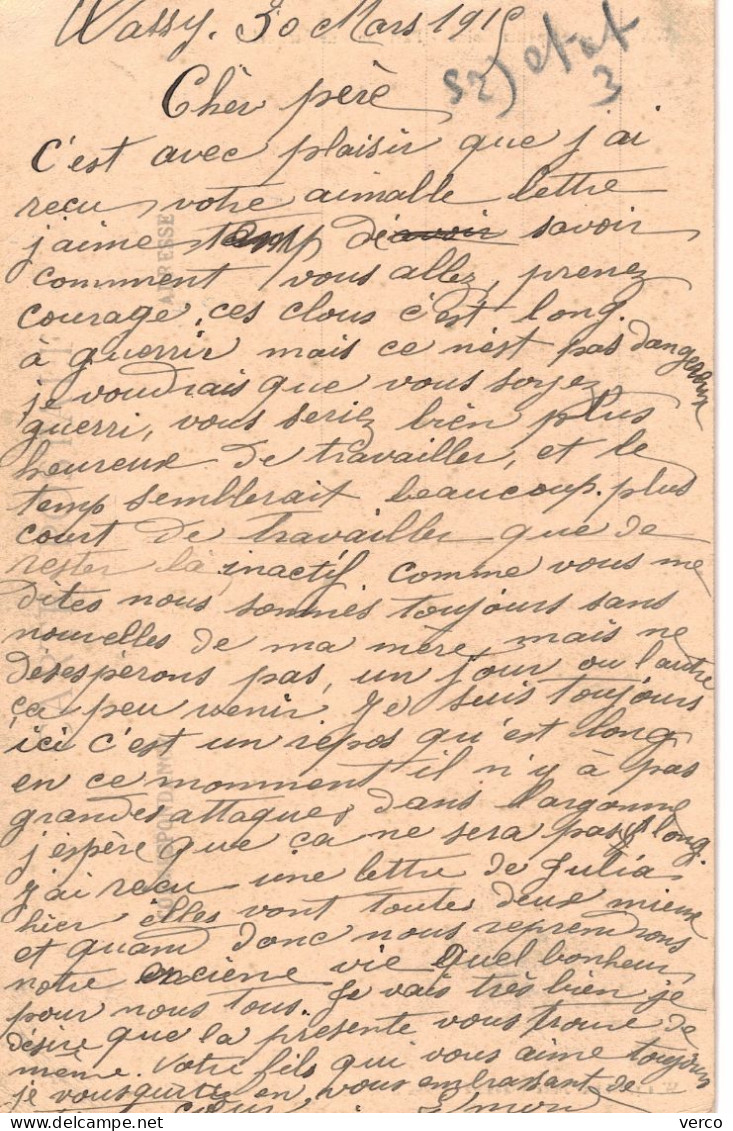 Wassy. 30 Mars 1915
Chèr père
C'est avec plaisir que j'ai
recu votre aimable lettre
j'aime temp de avoir savoir
comment vous allez, prenez
courage, ces clous c'est long
à guerrir mais ce n'est pas dangereux
je voudrais que vous soyez
guerri, vous seriez bièn plus
heureux de travailler, et le
temp semblerait beaucoup plus
court de travailler que de
rester là inactif. Comme vous me
dites nous sommes toujours sans
nouvelles de ma mère, mais ne
désespèrons pas, un jour ou l'autre
ça peu venir. Je suis toujours
ici c'est un repos qu'est long
en ce momment il n'y à pas
grandes attaques dans l'argonne
j'espère que ca ne sera pas long.
j'ai recu une lettre de Julia
hier èlles vont toute deux mieux
et quand donc nous reprendrons
notre enciène vie Quel bonheur
pour nous tous. Je vais très bien je
désire que la présente vous trouve de
même. Votre fils qui vous aime toujours
je vous quitte en vous embrassant de
coeur
ADRESSE
verco